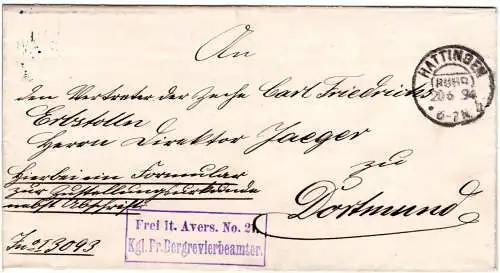 An
HATTINGEN
(RUHR)
20.6 94
6-7N.
den Vertreter der Zeche Carl Friedrichs
Erbstolln
Herrn Direktor Jaeger
Hierbei ein Formular
zu
zur Zustellungsurkunde
nebst Abschrift
Dortmund
Frei lt. Avers. No. 21.
Kgl. Pr. Bergrevierbeamter.
J no I 3093